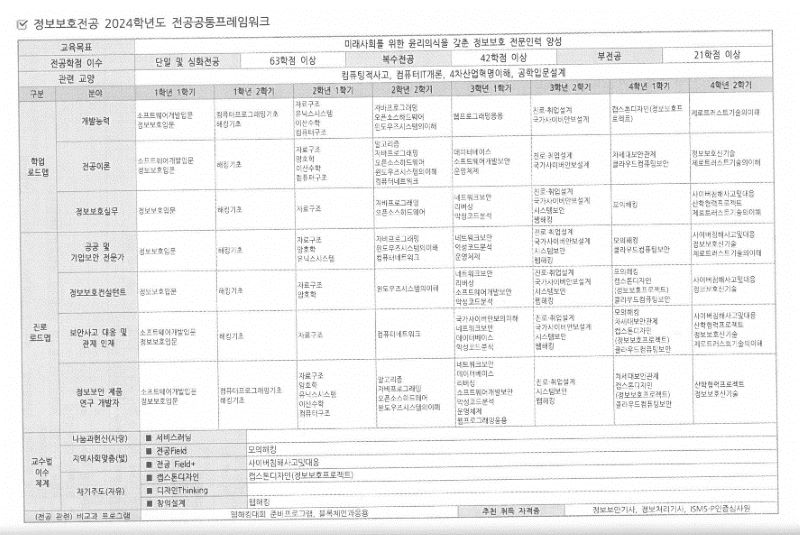 정보보호전공 2024학년도 전공공통프레임워크
교육목표 미래사회를 위한 윤리의식을 갖춘 정보보호 전문인력 양성
전공학점 이수 단일 및 심화전공 63학점 이상 복수전공 42학점 이상 부전공 21학점 이상
관련 교양 컴퓨팅적사고, 컴퓨터IT개론, 4차산업혁명이해, 공학입문설계
구분 분야 1학년 1학기 1학년 2학기 2학년 1학기 2학년 2학기 3학년 1학기 3학년 2학기 4학년 1학기 4학년 2학기
학업
로드맵
개발능력
소프트웨어개발입문
정보보호입문
컴퓨터프로그래밍기초
해킹기초
자료구조
유닉스시스템
이산수학
컴퓨터구조
자바프로그래밍
오픈소스하드웨어
윈도우즈시스템의이해
웹프로그래밍응용
진로·취업설계
국가사이버안보정책
캡스톤디자인(정보보호프
로젝트)
제로트러스트기술의이해
전공이론
소프트웨어개발입문
정보보호입문
해킹기초
자료구조
암호학
이산수학
컴퓨터구조
알고리즘
자바프로그래밍
오픈소스하드웨어
윈도우즈시스템의이해
컴퓨터네트워크
데이터베이스
소프트웨어개발보안
운영체제
진로·취업설계
차세대보안관제
클라우드컴퓨팅보안
정보보호신기술
제로트러스트기술의이해
정보보호실무
정보보호입문
해킹기초
자료구조
자바프로그래밍
오픈소스하드웨어
네트워크보안
리버싱
악성코드분석
진로·취업설계
시스템보안
웹해킹
모의해킹
사이버침해사고및대응
산학협력프로젝트
제로트러스트기술의이해
진로
로드맵
공공 및
기업보안 전문가
정보보호입문
해킹기초
자료구조
암호학
유닉스시스템
자바프로그래밍
윈도우즈시스템의이해
컴퓨터네트워크
네트워크보안
악성코드분석
운영체제
진로·취업설계
시스템보안
웹해킹
모의해킹
클라우드컴퓨팅보안
사이버침해사고및대응
정보보호신기술
제로트러스트기술의이해
정보보호컨설턴트
정보보호입문
해킹기초
자료구조
암호학
윈도우즈시스템의이해
네트워크보안
리버싱
소프트웨어개발보안
악성코드분석
진로·취업설계
시스템보안
웹해킹
모의해킹
캡스톤디자인
(정보보호프로젝트)
클라우드컴퓨팅보안
사이버침해사고및대응
정보보호신기술
보안사고 대응 및
관제 인재
소프트웨어개발입문
정보보호입문
해킹기초
자료구조
컴퓨터네트워크
국가사이버안보의이해
네트워크보안
데이터베이스
악성코드분석
진로·취업설계
시스템보안
웹해킹
모의해킹
차세대보안관제
캡스톤디자인
(정보보호프로젝트)
클라우드컴퓨팅보안
사이버침해사고및대응
산학협력프로젝트
정보보호신기술
제로트러스트기술의이해
정보보안 제품
연구 개발자
소프트웨어개발입문
정보보호입문
컴퓨터프로그래밍기초
해킹기초
자료구조
암호학
유닉스시스템
이산수학
컴퓨터구조
알고리즘
자바프로그래밍
오픈소스하드웨어
윈도우즈시스템의이해
네트워크보안
데이터베이스
리버싱
소프트웨어개발보안
악성코드분석
운영체제
웹프로그래밍응용
진로·취업설계
시스템보안
웹해킹
차세대보안관제
캡스톤디자인
(정보보호프로젝트)
클라우드컴퓨팅보안
산학협력프로젝트
정보보호신기술
교수법
이수
체계
나눔과헌신(사랑) ■ 서비스러닝
지역사회맞춤(빛) ■ 전공Field 모의해킹
■ 전공 Field+ 사이버침해사고및대응
자기주도(자유) ■ 캡스톤디자인 캡스톤디자인(정보보호프로젝트)
■ 디자인Thinking
■ 창의설계 웹해킹
(전공 관련) 비교과 프로그램 웹해킹대회 준비프로그램, 블록체인과응용 추천 취득 자격증 정보보안기사, 정보처리기사, ISMS-P인증심사원